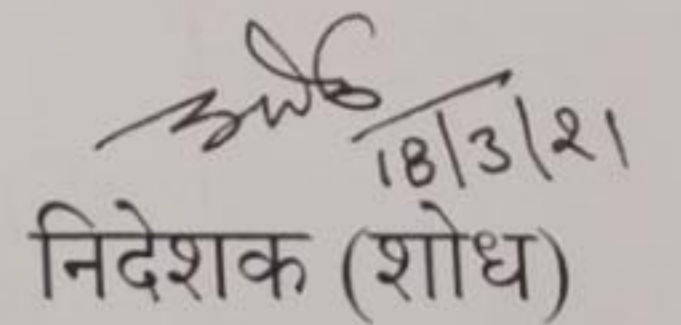 18/3/21
निदेशक (शोध)